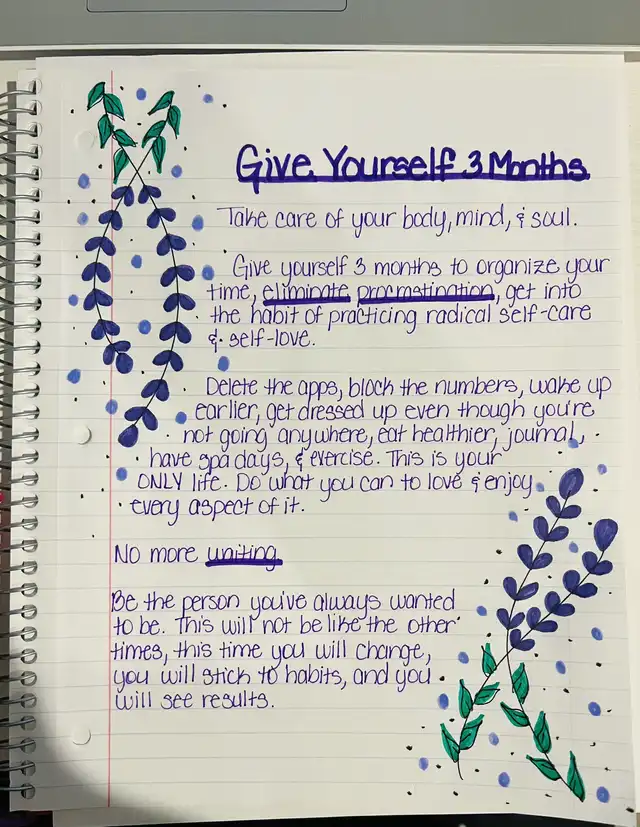 Give Yourself 3 Months
Take care of your body, mind, & soul.
Give yourself 3 months to organize your
time, eliminate procrastination, get into
the habit of practicing radical self-care
& self-love.
Delete the apps, block the numbers, wake up
earlier, get dressed up even though you're
not going anywhere, eat healthier, journal,
have spa days, & exercise. This is your
ONLY life. Do what you can to love & enjoy
every aspect of it.
No more waiting
Be the person you've always wanted
to be. This will not be like the other
times, this time you will change,
you will stick to habits, and you
will see results.